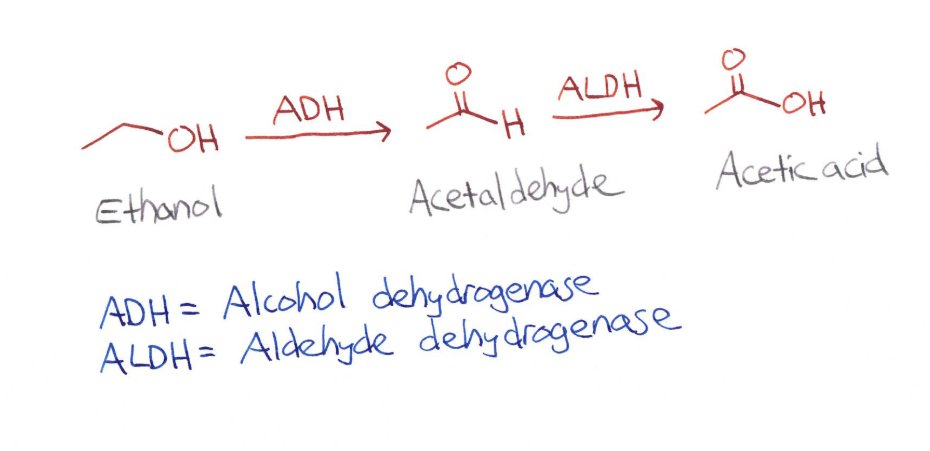 O O
ADH ALDH
OH H OH
Ethanol Acetaldehyde Acetic acid
ADH = Alcohol dehydrogenase
ALDH = Aldehyde dehydrogenase